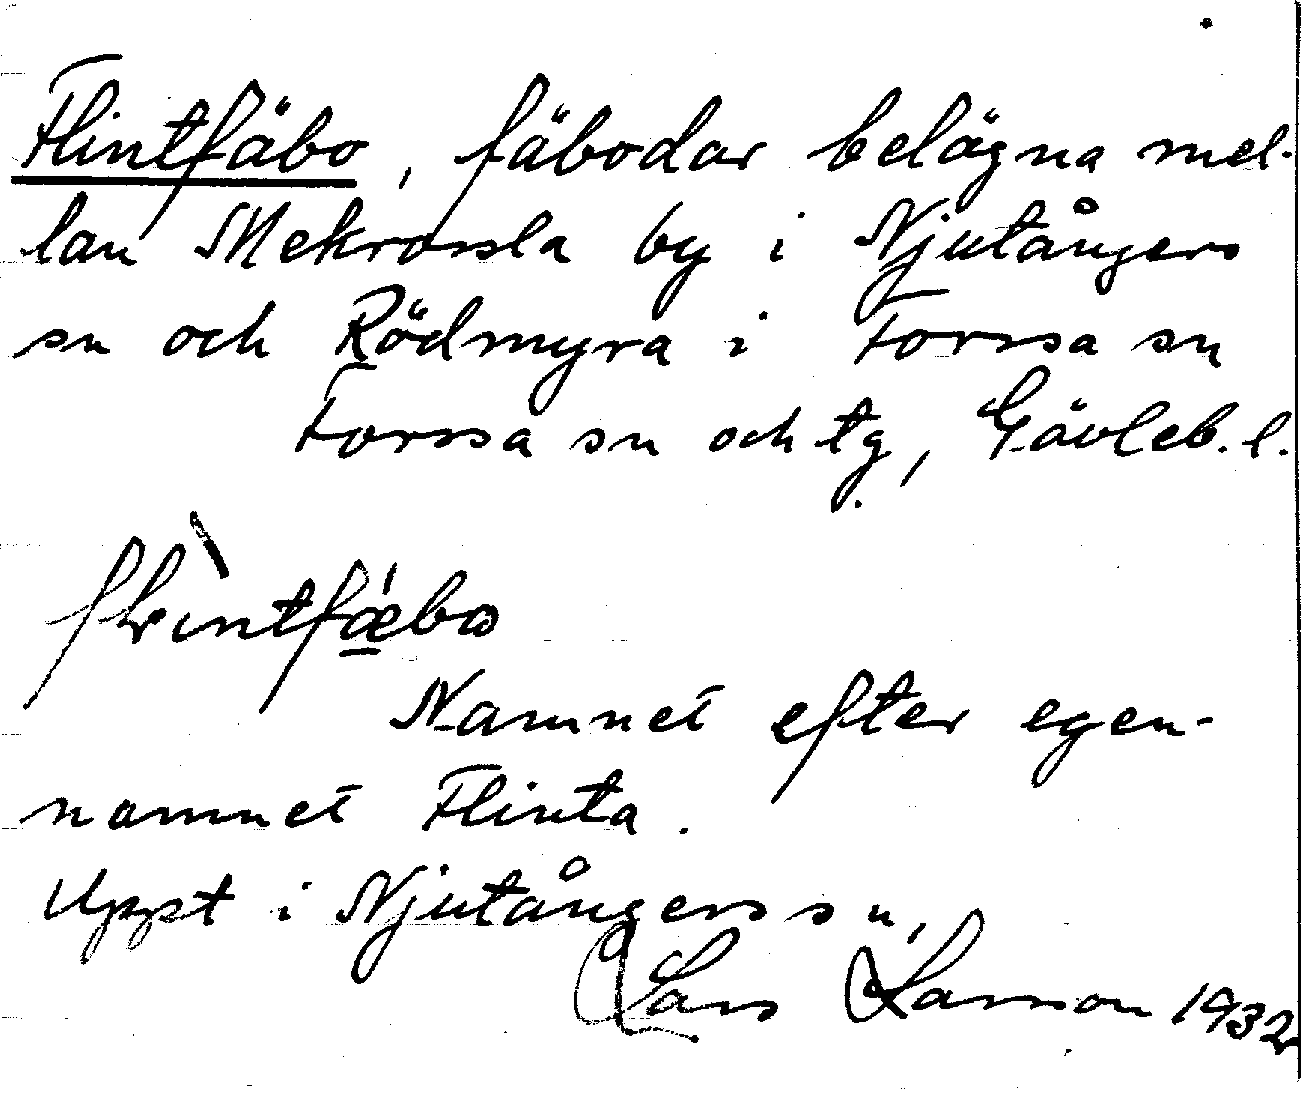 Flintfäbo, fäbodar belägna mel-
lan Mekrossla by i Njutångers
sn och Rödmyra i Forssa sn
Forssa sn och tg, Gävleb. l.
Namnet efter egen-
namnet Flinta.
Uppt i Njutångers sn,
Lars Larsson 1932